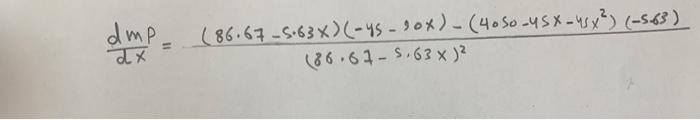 dmp/dx = (86.67 - 5.63x)(-45 - 90x) - (4050 - 45x - 45x²)(-5.63) / (86.67 - 5.63x)²